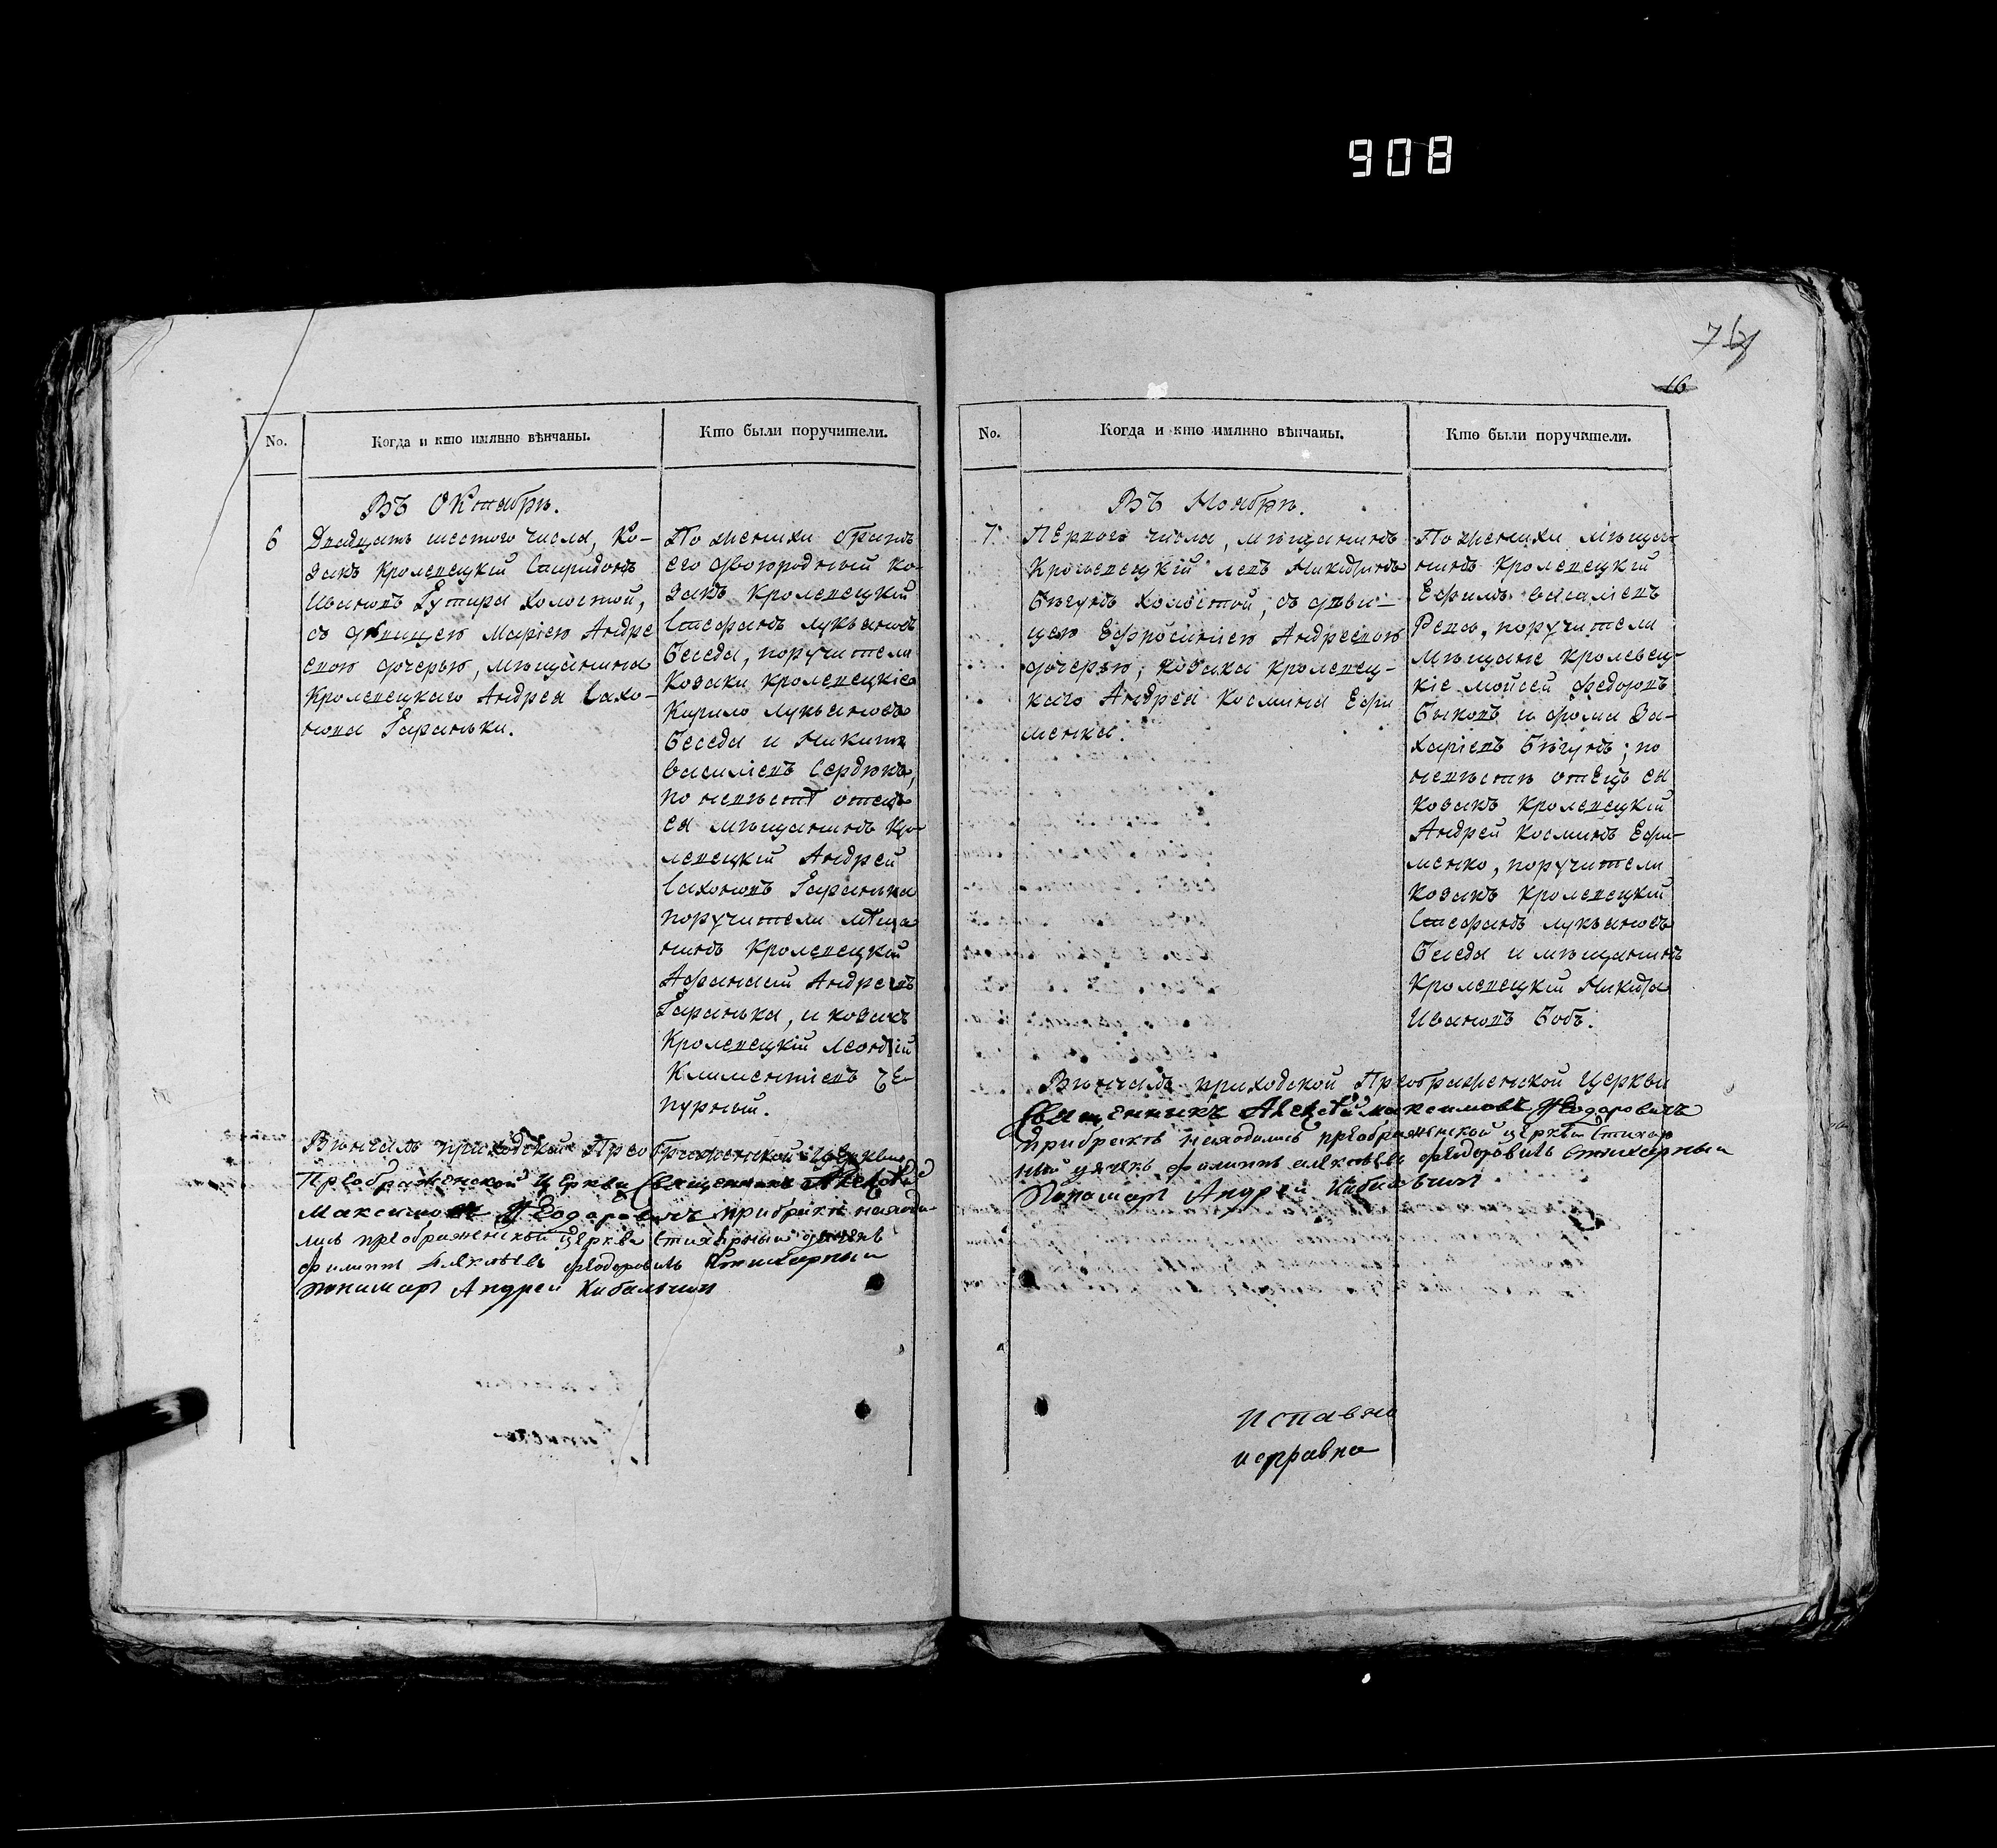 908
76
16
No.
Когда и кто имянно вѣнчаны.
Кто были поручители.
Въ Октябрѣ.
6
Двадцать шестого числа, Ко-
закъ Кролевецкій Спиридонъ
Ивановъ Гутира холостой,
съ дѣвицею Маріею Андре
евою дочерью, мѣщанина
Кролевецкаго Андрея Сахо-
нова Гараньки.
По женихи братъ
его двоюродный ко-
закъ Кролевецкій
Стефанъ Лукьяновъ
Беседа, поручители
Козаки Кролевецкіе
Кирило Лукьяновъ
Беседа и Никита
Василіевъ Сердюкъ,
по невѣстѣ отецъ
ея мѣщанинъ Кро-
левецкій Андрей
Сахоновъ Гаранька
поручители мѣща
нинъ Кролевецкій
Афанасій Андреевъ
Гаранька, и козакъ
Кролевецкій Леонтій
Климентіевъ Че-
пурный.
Вѣнчалъ приходской Преображенской Церкви
Преображенской Церкви Священникъ Алексѣй
Максимовъ Феодоровичъ прибракѣ находи-
лись преображенской церкви Стихарный дячекъ
Филиппъ Алексѣевъ Феодоровичъ Стихарный
Пономарь Андрей Кибальчич
No.
Когда и кто имянно вѣнчаны.
Кто были поручители.
Въ Ноябрѣ.
7
Первого числа, мѣщанинъ
Кролевецкій Левъ Никитинъ
Бѣгунъ холостой, съ дѣви-
цею Ефросиніею Андреевою
дочерью, козака Кролевец-
каго Андрея Космина Ефи
менка.
По женихи мѣща-
нинъ Кролевецкій
Ефимъ Василіевъ
Репа, поручители
Мѣщане Кролевец-
кіе Мойсей Федоровъ
Быковъ и Фома За-
харіевъ Бѣгунъ; по
невѣстѣ отецъ ея
козакъ Кролевецкій
Андрей Косминъ Ефи-
менко, поручители
козакъ Кролевецкій
Стефанъ Лукьяновъ
Беседа и мѣщанинъ
Кролевецкій Никита
Ивановъ Бобъ.
Вѣнчалъ приходской Преображенской Церкви
Священникъ Алексѣй Максимовъ Феодоровичъ
прибракѣ находились преображенской церкви Стихар
ный дячекъ Филиппъ Алексѣевъ Феодоровичъ Стихарный
Пономарь Андрей Кибальчич
исправно